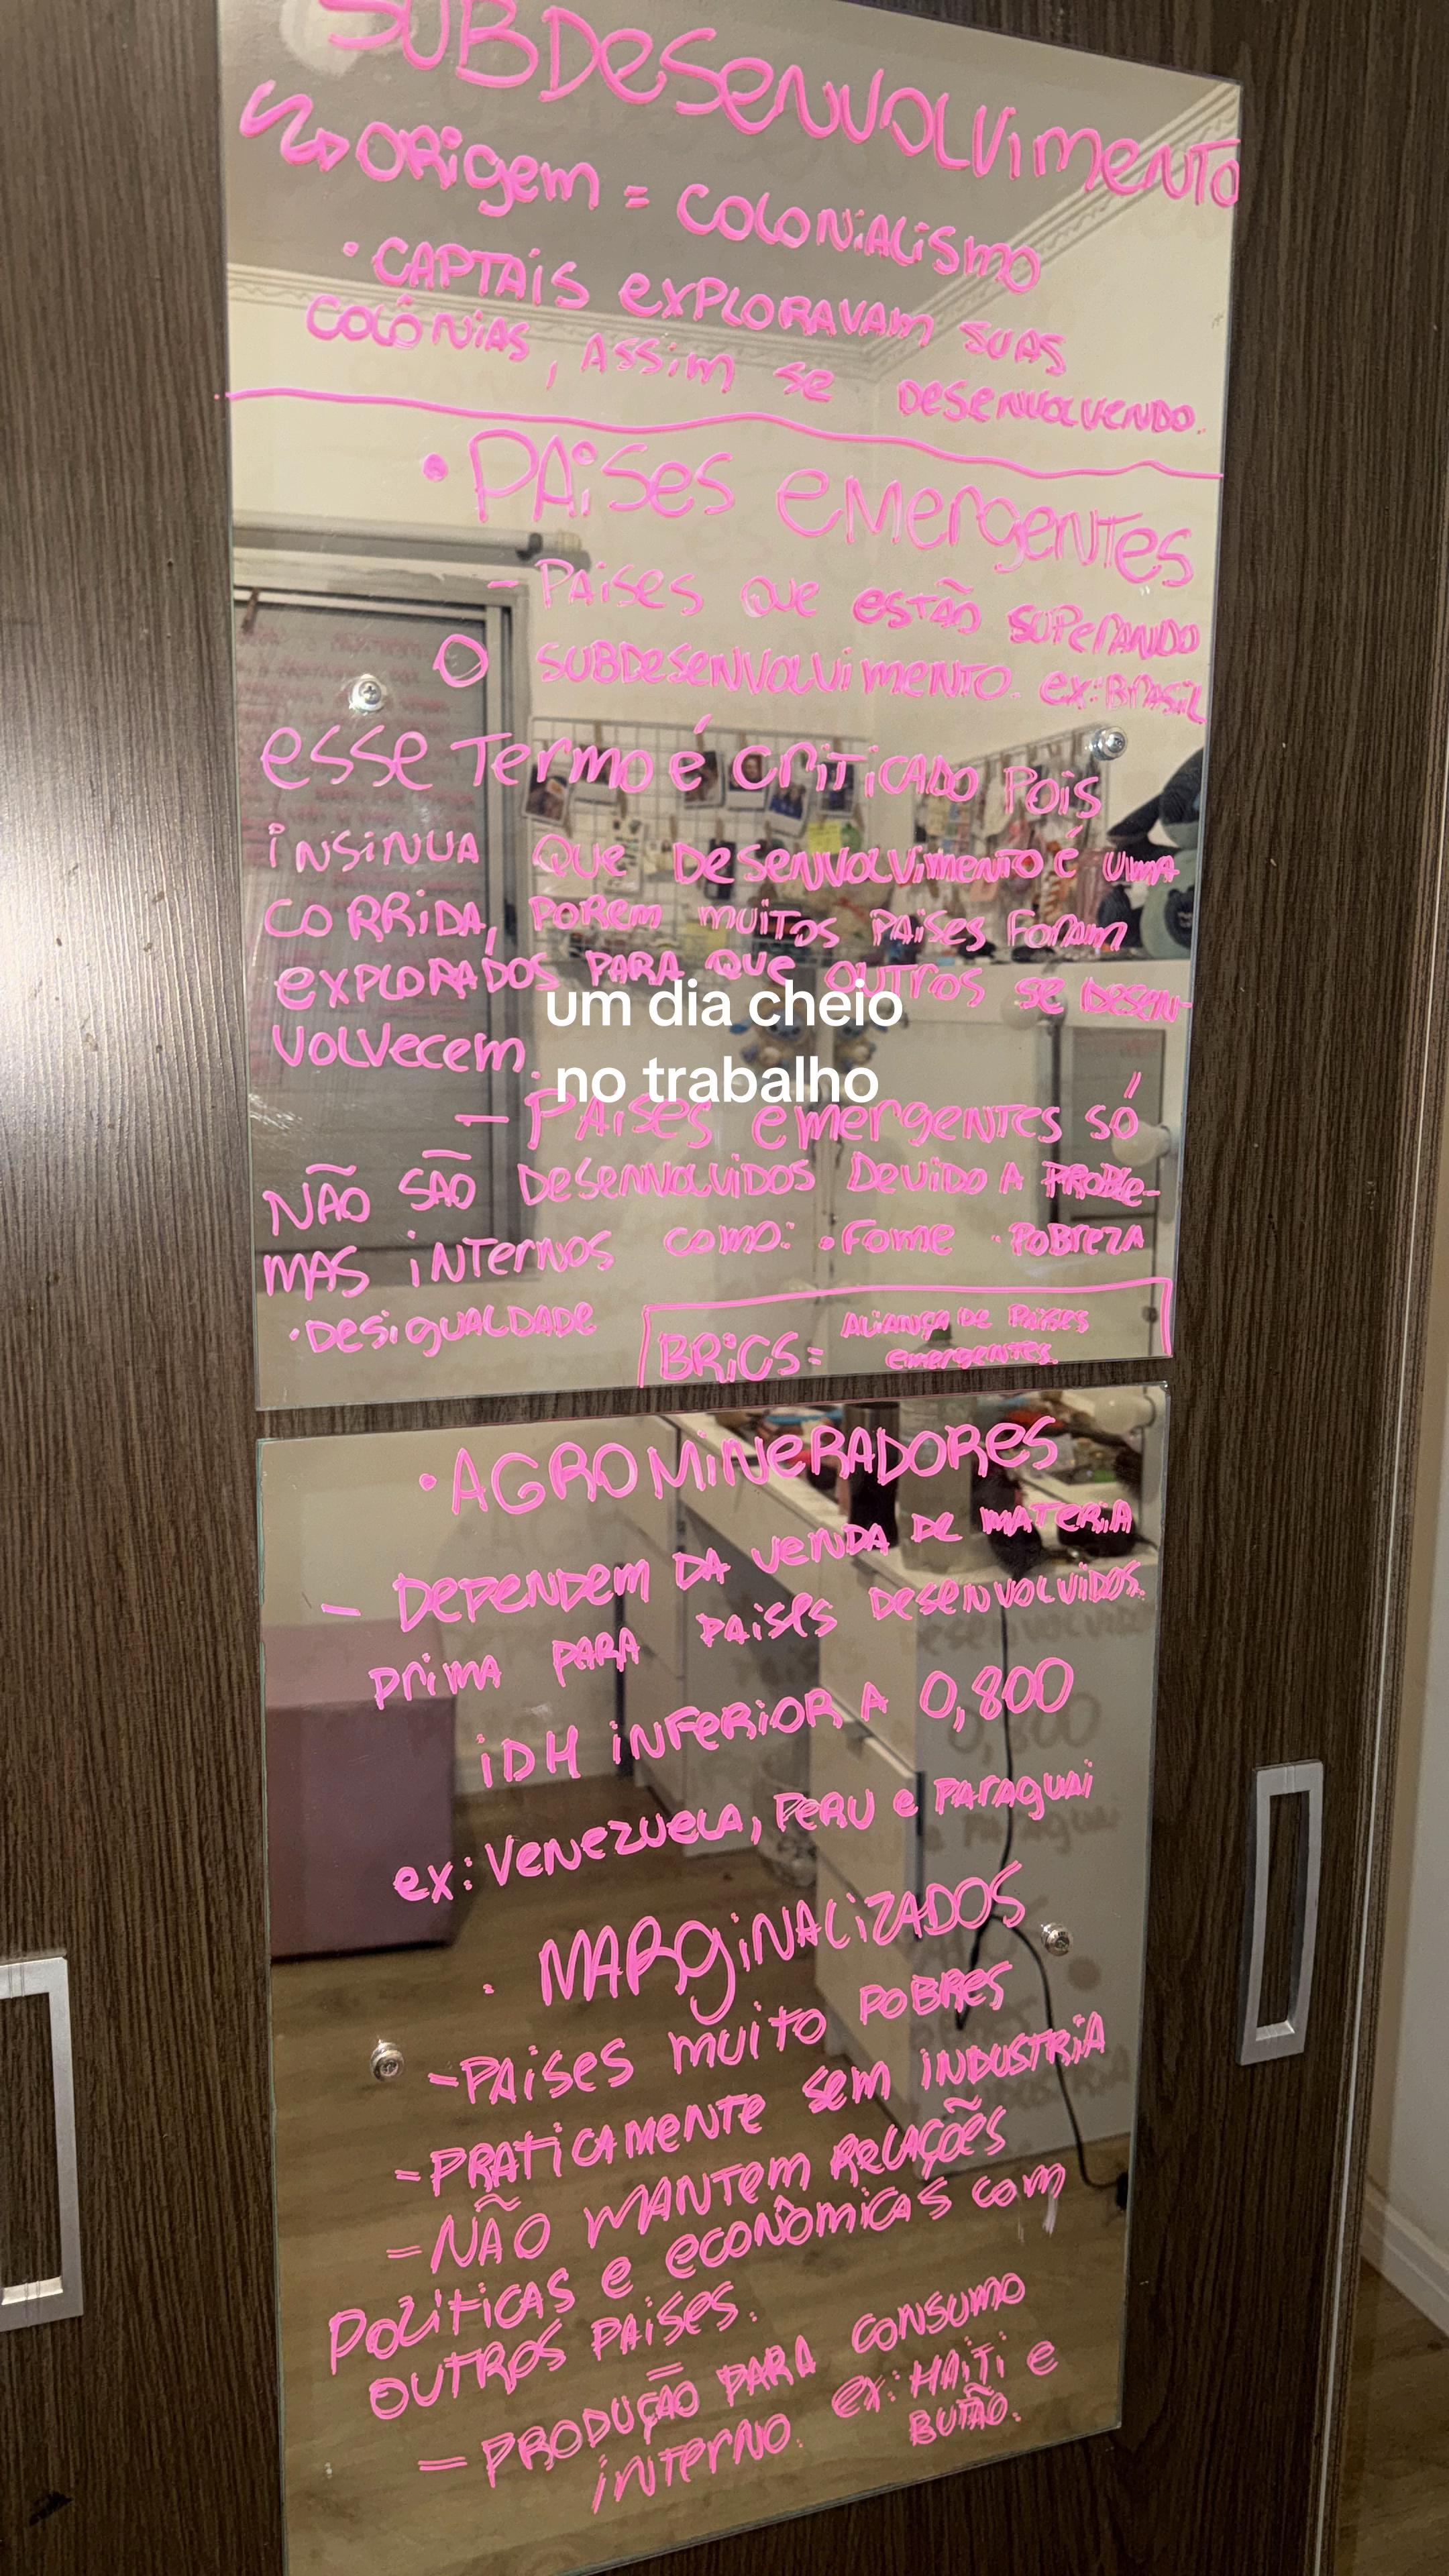 SUBDESENVOLVIMENTO
ORIGEM = COLONIALISMO
• CAPTAIS EXPLORAVAM SUAS
COLÔNIAS, ASSIM SE DESENVOLVENDO.
• PAISES EMERGENTES
- PAISES QUE ESTÃO SUPERANDO
O SUBDESENVOLVIMENTO. EX: BRASIL
ESSE TERMO É CRITICADO POIS
INSINUA QUE DESENVOLVIMENTO É UMA
CORRIDA, POREM MUITOS PAISES FORAM
EXPLORADOS PARA QUE OUTROS SE DESEN-
VOLVECEM.
um dia cheio
no trabalho
- PAISES EMERGENTES SÓ
NÃO SÃO DESENVOLVIDOS DEVIDO A PROBLE-
MAS INTERNOS COMO: • FOME • POBREZA
• DESIGUALDADE
BRICS = ALIANÇA DE PAISES
EMERGENTES.
• AGROMINERADORES
- DEPENDEM DA VENDA DE MATERIA
PRIMA PARA PAISES DESENVOLVIDOS.
IDH INFERIOR A 0,800
EX: VENEZUELA, PERU E PARAGUAI
• MARGINALIZADOS
- PAISES MUITO POBRES
- PRATICAMENTE SEM INDUSTRIA
- NÃO MANTEM RELAÇÕES
POLÍTICAS E ECONÔMICAS COM
OUTROS PAISES.
- PRODUÇÃO PARA CONSUMO
INTERNO. EX: HAITI E
BUTÃO.